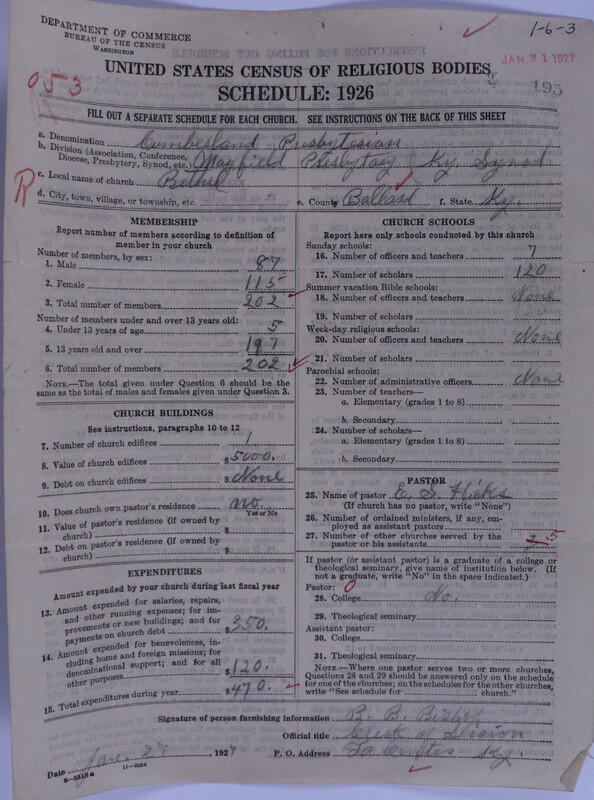 DEPARTMENT OF COMMERCE
BUREAU OF THE CENSUS
WASHINGTON
1-6-3
JAN 31 1927
195
053
UNITED STATES CENSUS OF RELIGIOUS BODIES,
SCHEDULE: 1926
FILL OUT A SEPARATE SCHEDULE FOR EACH CHURCH. SEE INSTRUCTIONS ON THE BACK OF THIS SHEET
a. Denomination Cumberland Presbyterian
b. Division (Association, Conference, Diocese, Presbytery, Synod, etc.) Mayfield Presbytery Ky. Synod
R
c. Local name of church Bethel
d. City, town, village, or township, etc. e. County Ballard f. State Ky.
MEMBERSHIP
Report number of members according to definition of
member in your church
Number of members, by sex:
1. Male 87
2. Female 115
3. Total number of members 202
Number of members under and over 13 years old:
4. Under 13 years of age 5
5. 13 years old and over 197
6. Total number of members 202
NOTE.—The total given under Question 6 should be
same as the total of males and females given under Question 3.
CHURCH BUILDINGS
See instructions, paragraphs 10 to 12
7. Number of church edifices 1
8. Value of church edifices $5000.
9. Debt on church edifices $ None
10. Does church own pastor's residence? no.
Yes or No
11. Value of pastor's residence (if owned by
church) $
12. Debt on pastor's residence (if owned by
church) $
EXPENDITURES
Amount expended by your church during last fiscal year
13. Amount expended for salaries, repairs,
and other running expenses; for im-
provements or new buildings; and for
payments on church debt $350.
14. Amount expended for benevolences, in-
cluding home and foreign missions; for
denominational support; and for all
other purposes $120.
15. Total expenditures during year $470.
CHURCH SCHOOLS
Report here only schools conducted by this church
Sunday schools:
16. Number of officers and teachers 7
17. Number of scholars 120
Summer vacation Bible schools:
18. Number of officers and teachers None
19. Number of scholars
Week-day religious schools:
20. Number of officers and teachers None
21. Number of scholars
Parochial schools:
22. Number of administrative officers None
23. Number of teachers—
a. Elementary (grades 1 to 8)
b. Secondary
24. Number of scholars—
a. Elementary (grades 1 to 8)
b. Secondary
PASTOR
25. Name of pastor E. S. Hicks
(If church has no pastor, write "None")
26. Number of ordained ministers, if any, em-
ployed as assistant pastors
27. Number of other churches served by the
pastor or his assistants 5
If pastor (or assistant pastor) is a graduate of a college or
theological seminary, give name of institution below. (If
not a graduate, write "No" in the space indicated.)
Pastor: 0
28. College No.
29. Theological seminary
Assistant pastor:
30. College
31. Theological seminary
NOTE.—Where one pastor serves two or more churches,
Questions 28 and 29 should be answered only on the schedule
for one of the churches; on the schedules for the other churches,
write "See schedule for church."
Signature of person furnishing information B. B.
Official title Clerk of Session
Date Jan. 27, 1927 P. O. Address Ky
8-5518a 11-9034